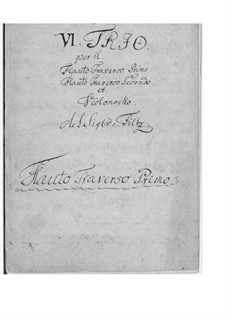 VI. TRIO.
per il
Flauto Traverso Primo
Flauto Traverso Secondo
et
Violoncello
Del Sigl: Filtz
Flauto Traverso Primo